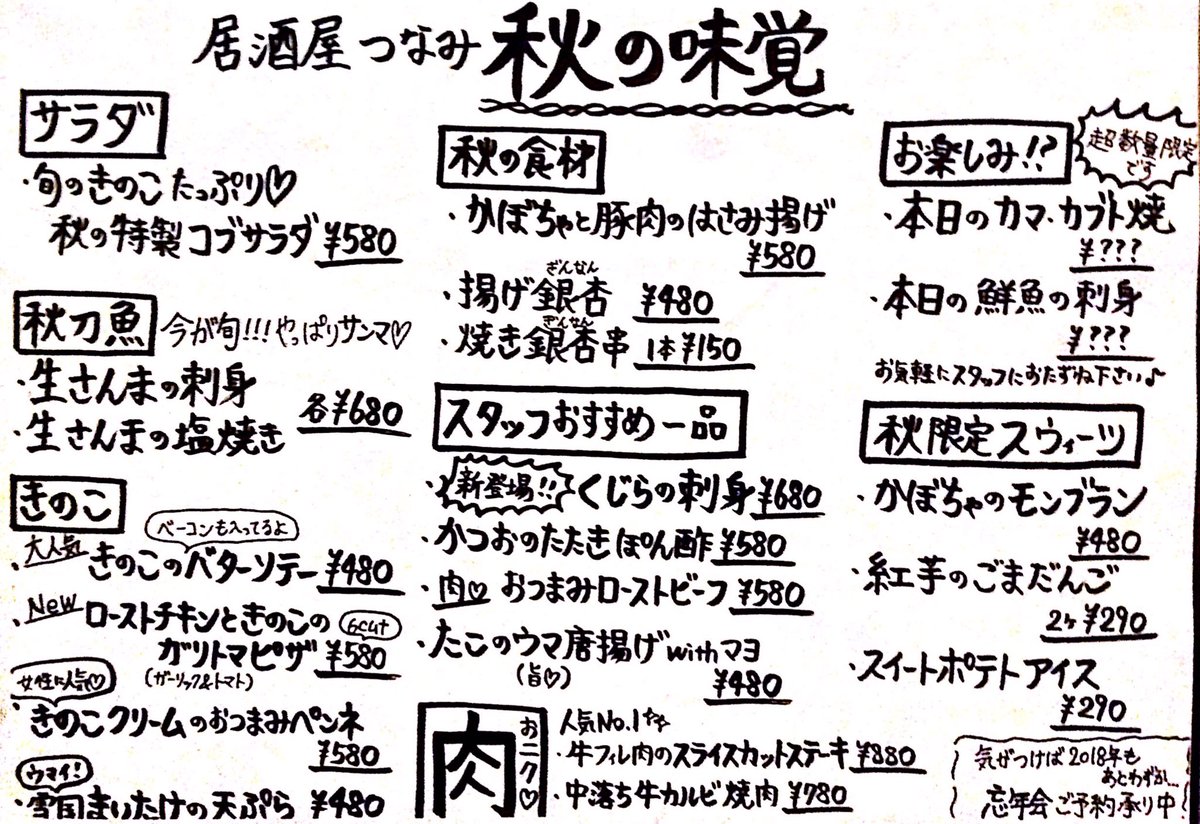 居酒屋つなみ 秋の味覚
サラダ
・旬のきのこたっぷり♡
秋の特製コブサラダ ¥580
秋刀魚 今が旬!!!やっぱりサンマ♡
・生さんまの刺身
・生さんまの塩焼き
各¥680
きのこ
ベーコンも入ってるよ
・大人気 きのこのバターソテー ¥480
・New ローストチキンときのこの
6cut
ガリトマピザ ¥580
(ガーリック&トマト)
女性に人気♡
・きのこクリームのおつまみペンネ
¥580
ウマイ!
・雪国まいたけの天ぷら ¥480
秋の食材
・かぼちゃと豚肉のはさみ揚げ
¥580
ぎんなん
・揚げ銀杏 ¥480
ぎんなん
・焼き銀杏串 1本¥150
スタッフおすすめ一品
・新登場!! くじらの刺身 ¥680
・かつおのたたきぽん酢 ¥580
・肉♡ おつまみローストビーフ ¥580
・たこのウマ唐揚げwithマヨ
(旨♡)
¥480
肉
おニク♡
人気No.1☆☆
・牛フィレ肉のスライスカットステーキ ¥880
・中落ち牛カルビ焼肉 ¥780
お楽しみ!?
超数量限定
です
・本日のカマ・カブト焼
¥???
・本日の鮮魚の刺身
¥???
お気軽にスタッフにおたずね下さい♪
秋限定スウィーツ
・かぼちゃのモンブラン
¥480
・紅芋のごまだんご
2ヶ¥290
・スイートポテトアイス
¥290
気がつけば2018年も
あとわずか…
忘年会ご予約承り中!